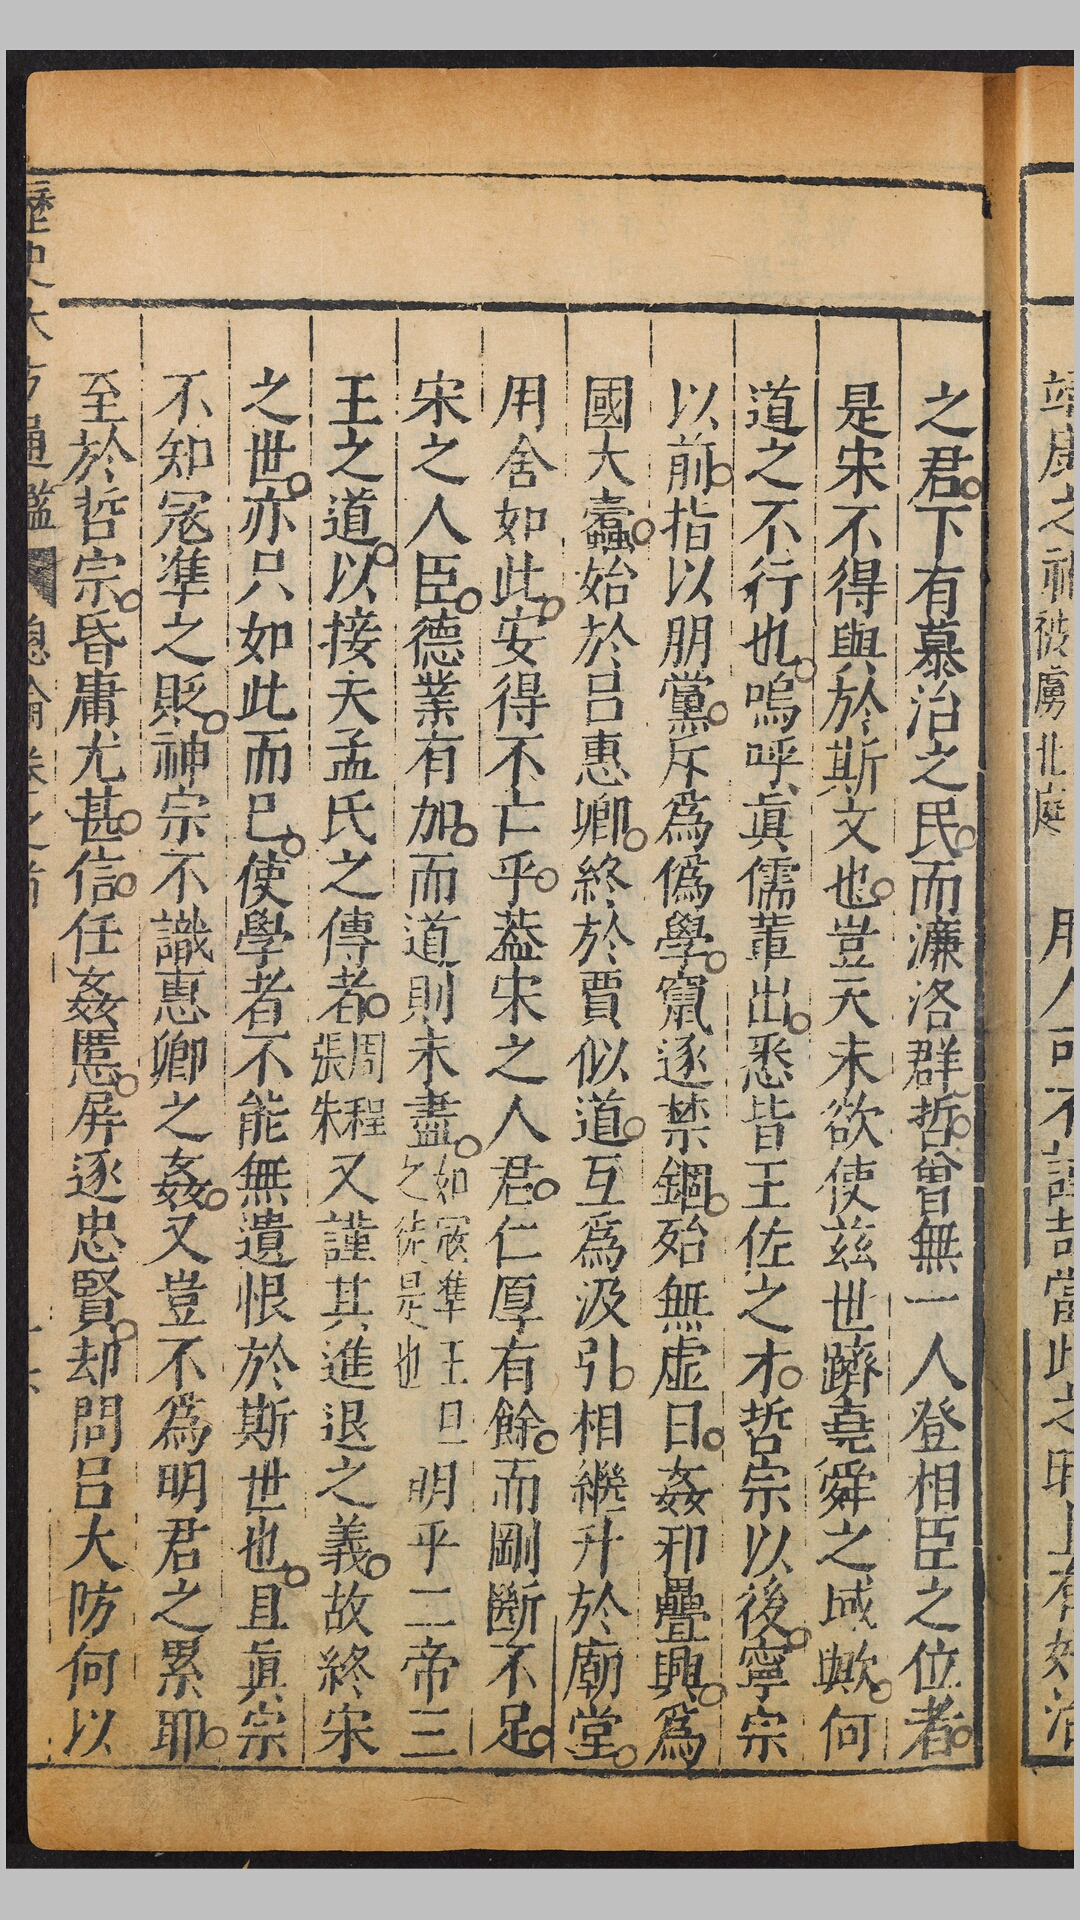 之君下有慕治之民而濂洛群哲曾無一人登相臣之位者
是宋不得與於斯文也豈天未欲使茲世躋堯舜之域歟何
道之不行也嗚呼眞儒輩出悉皆王佐之才哲宗以後寧宗
以前指以朋黨斥爲僞學竄逐禁錮殆無虛日姦邪疊興爲
國大蠹始於呂惠卿終於賈似道互爲汲引相繼升於廟堂
用舍如此安得不亡乎蓋宋之人君仁厚有餘而剛斷不足
宋之人臣德業有加而道則未盡如寇準王旦之徒是也明乎二帝三
王之道以接夫孟氏之傳者周程張朱又謹其進退之義故終宋
之世亦只如此而已使學者不能無遺恨於斯世也且眞宗
不知寇準之貶神宗不識惠卿之姦又豈不爲明君之累耶
至於哲宗昏庸尤甚信任姦慝屏逐忠賢却問呂大防何以
歷史大方通鑑 總論卷之首